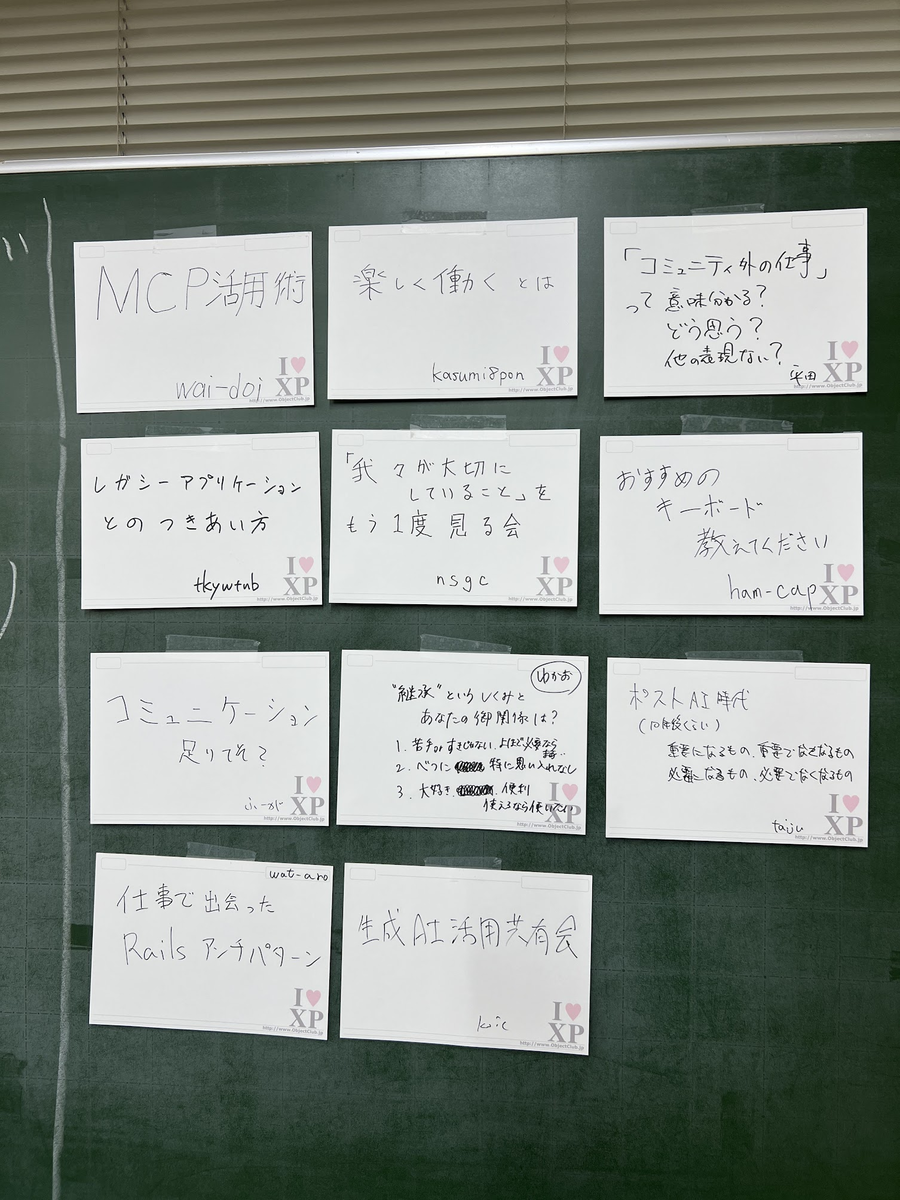 MCP活用術
wai-doi
I♥
XP
楽しく働くとは
kasumi8pon
I♥
XP
http://www.ObjectClub.jp
「コミュニティ外の仕事」
って 意味分かる?
どう思う?
他の表現ない?
平田
I♥
XP
http://www.ObjectClub.jp
レガシーアプリケーション
とのつきあい方
tkywtnb
I♥
XP
http://www.ObjectClub.jp
「我々が大切に
していること」を
もう1度見る会
nsgc
I♥
XP
http://www.ObjectClub.jp
おすすめの
キーボード
教えてください
ham-cap
I♥
XP
http://www.ObjectClub.jp
コミュニケーション
足りてそ?
ふーが
I♥
XP
http://www.ObjectClub.jp
ゆかお
"継承"というしくみと
あなたの御関係は?
1. 苦手or すきじゃない、よほど必要なら
2. べつに 特に思い入れなし
3. 大好き 便利
使えるなら使いたい
I♥
XP
http://www.ObjectClub.jp
ポストAI時代
(10年後くらい)
重要になるもの、重要でなくなるもの
必要になるもの、必要でなくなるもの
taiju
I♥
XP
http://www.ObjectClub.jp
wat-aro
仕事で出会った
Rails アンチパターン
I♥
XP
http://www.ObjectClub.jp
生成AI活用共有会
koic
I♥
XP
http://www.ObjectClub.jp